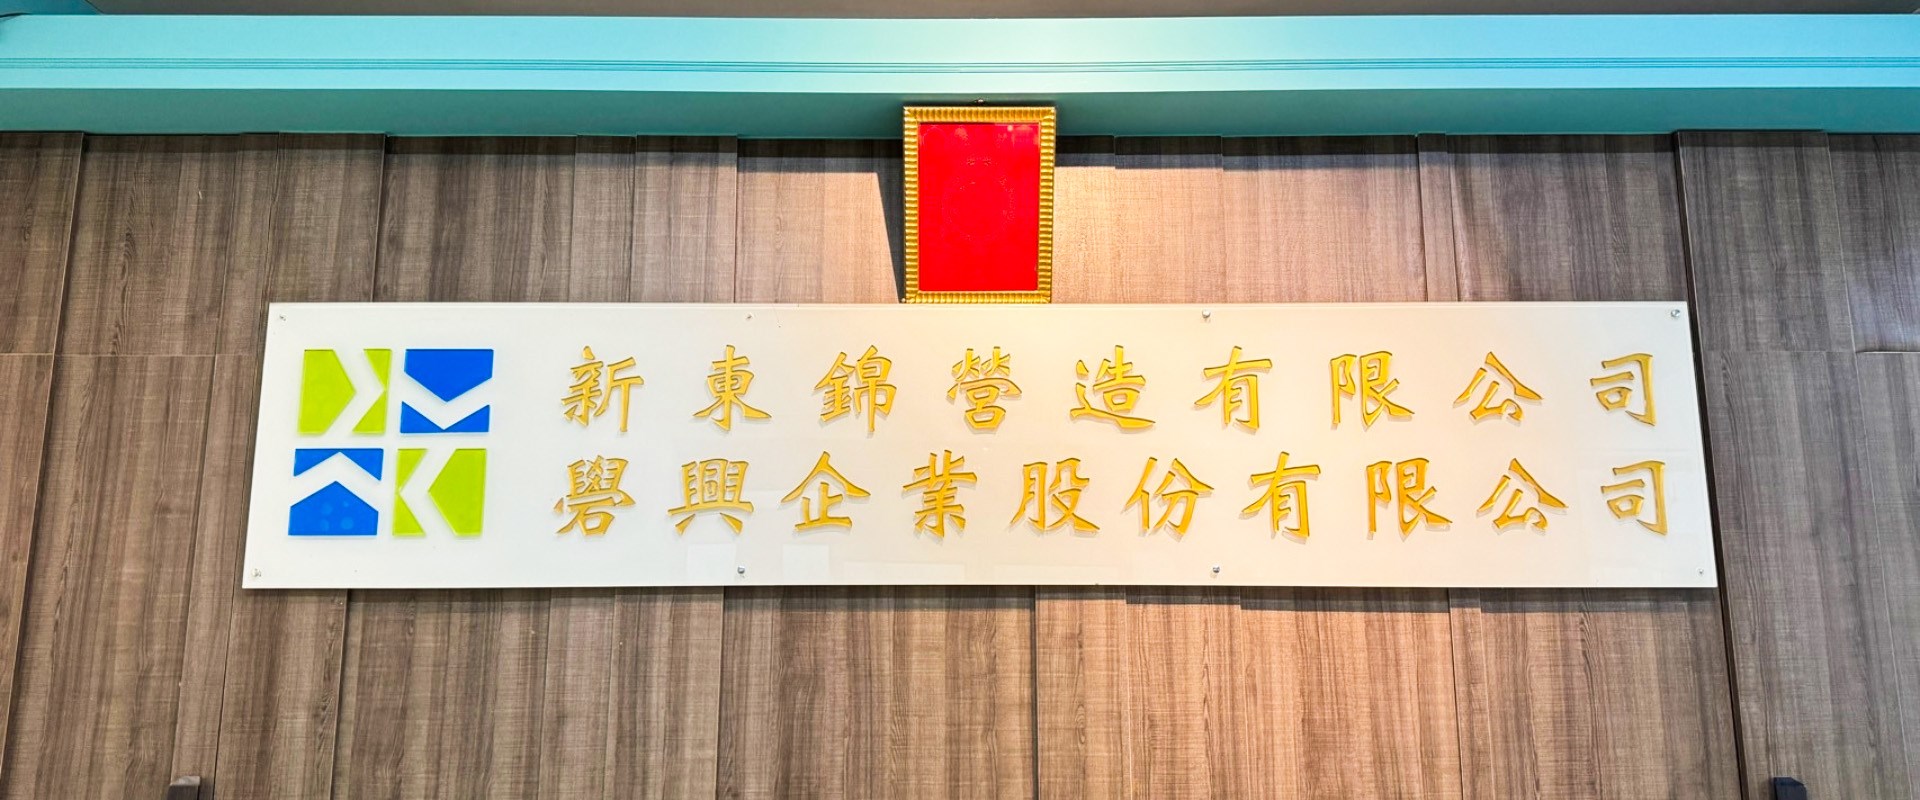 新東錦營造有限公司
礐興企業股份有限公司